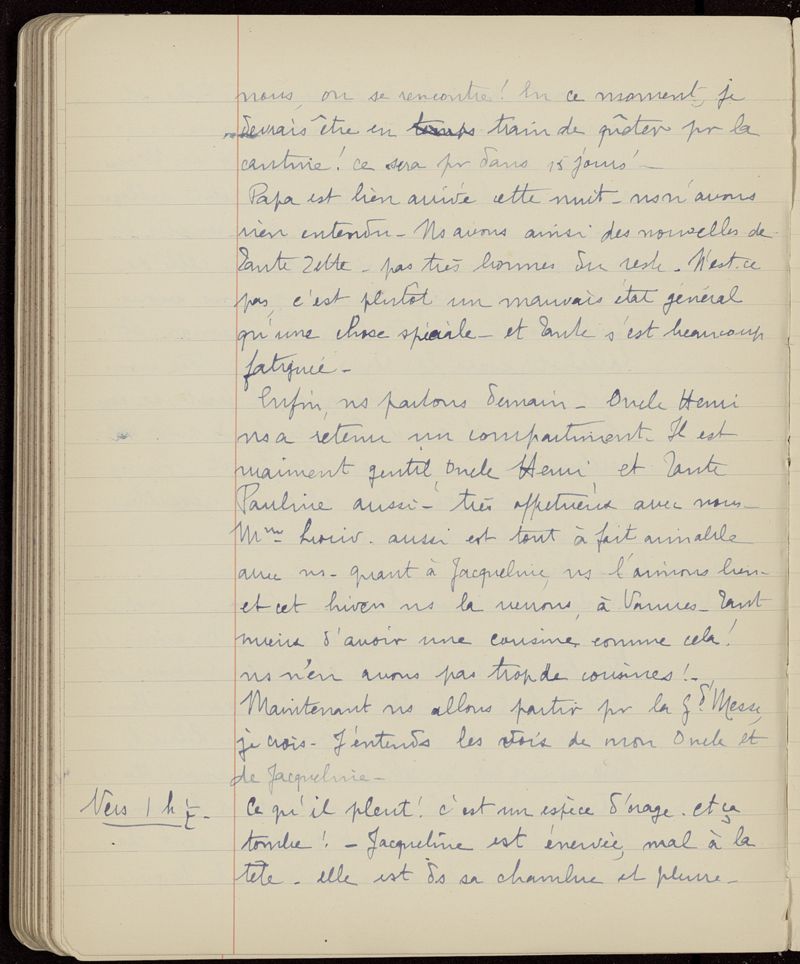 nous, on se rencontre! En ce moment, je
devrais être en temps train de quêter pr la
cantine! ce sera pr dans 15 jours! -
Papa est bien arrivé cette nuit - ns n'avons
rien entendu - Ns avons ainsi des nouvelles de
Tante Zette - pas très bonnes du reste. N'est-ce
pas, c'est plutôt un mauvais état général
qu'une chose spéciale - et Tante s'est beaucoup
fatiguée -
Enfin, ns partons demain - Oncle Henri
ns a retenu un compartiment. Il est
vraiment gentil, Oncle Henri, et Tante
Pauline aussi - très affectueux avec nous -
Mme aussi est tout à fait aimable
avec ns - quant à Jacqueline, ns l'aimons bien -
et cet hiver ns la verrons, à Vannes - Tant
mieux d'avoir une cousine comme cela!
ns n'en avons pas trop de cousines! -
Maintenant ns allons partir pr la Gd Messe,
je crois - J'entends les voix de mon Oncle et
de Jacqueline -
Vers 1 h ½ - Ce qu'il pleut! c'est un espèce d'orage. et ça
tombe! - Jacqueline est énervée, mal à la
tête - elle est ds sa chambre et pleure -